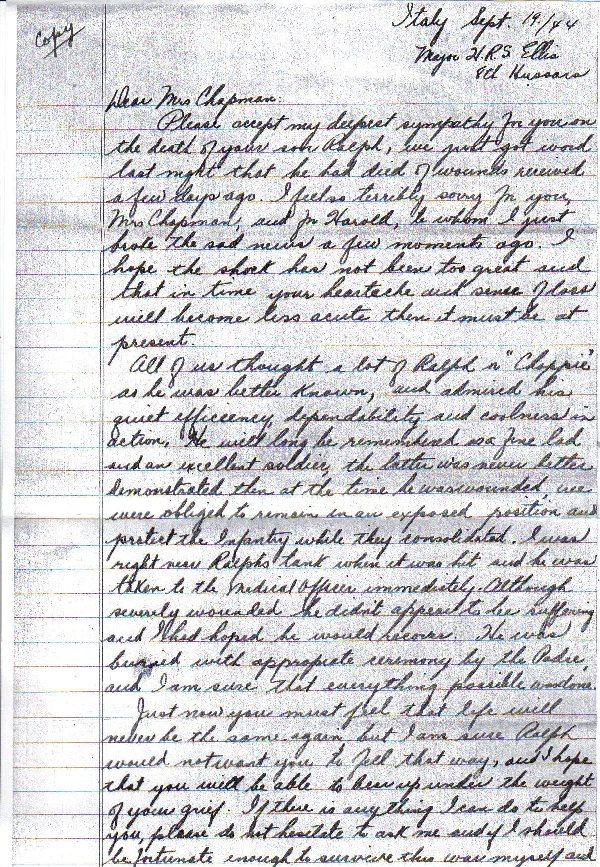 Copy
Italy Sept. 19./44
Major H.R.S. Ellis
8th Hussars
Dear Mrs Chapman:
Please accept my deepest sympathy for you on
the death of your son Ralph, we just got word
last night that he had died of wounds received
a few days ago. I feel so terribly sorry for you,
Mrs Chapman, and for Harold, to whom I just
broke the sad news a few moments ago. I
hope the shock has not been too great and
that in time your heartache and sense of loss
will become less acute then it must be at
present.
All of us thought a lot of Ralph or "Chappie"
as he was better known, and admired his
quiet efficiency, dependability and coolness in
action. He will long be remembered as a fine lad
and an excellent soldier, the latter was never better
demonstrated then at the time he was wounded, we
were obliged to remain in an exposed position and
protect the Infantry while they consolidated. I was
right near Ralphs tank when it was hit and he was
taken to the Medical Officer immediately. Although
severely wounded he didn't appear to be suffering
and I had hoped he would recover. He was
buried with appropiate ceremony by the Padre,
and I am sure that everything possible was done.
Just now you must feel that life will
never be the same again but I am sure Ralph
would not want you to feel that way, and I hope
that you will be able to bear up under the weight
of your grief. If there is anything I can do to help
you, please do not hesitate to ask me and if I should
be fortunate enough to survive this war myself and